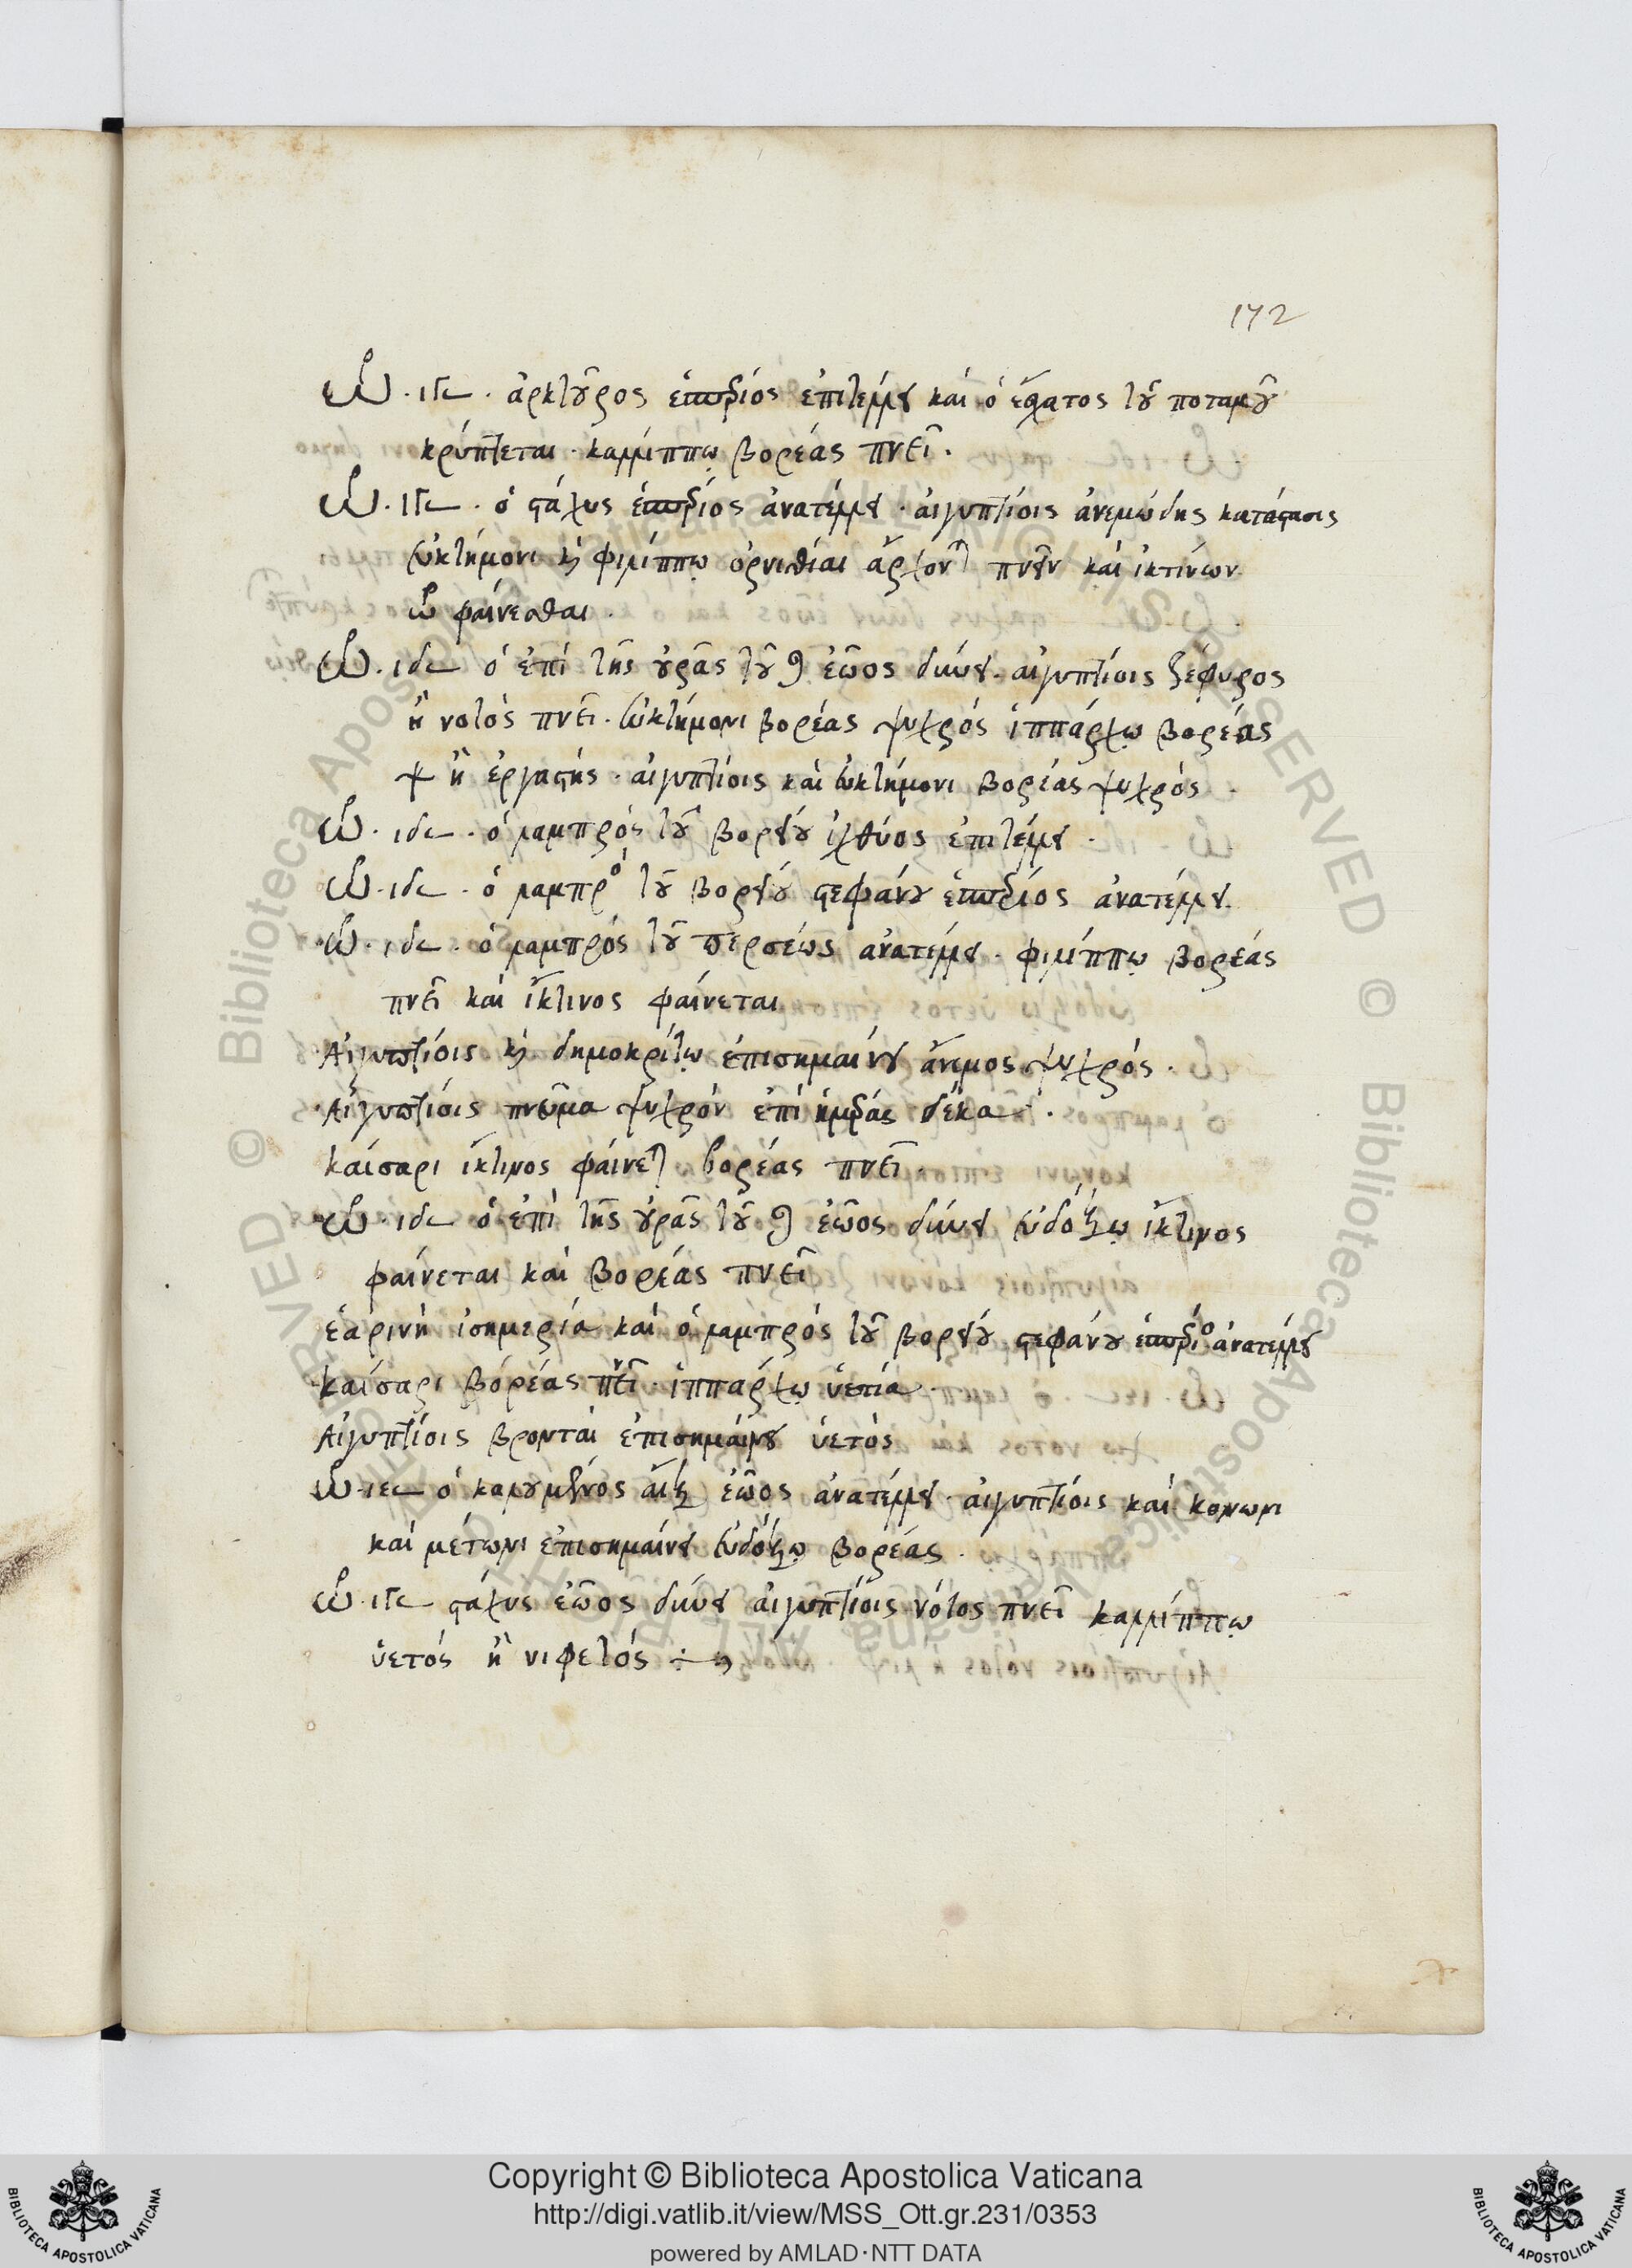 172
ὡρῶν ιγ𐅶 · ἀρκτοῦρος ἑσπέριος ἐπιτέλλει καὶ ὁ ἔσχατος τοῦ ποταμοῦ
κρύπτεται · καλλίππῳ βορέας πνεῖ ·
ὡρῶν ιγ𐅶 · ὁ στάχυς ἑσπέριος ἀνατέλλει · αἰγυπτίοις ἀνεμώδης κατάστασις
εὐκτήμονι καὶ φιλίππῳ ὀρνιθίαι ἄρχονται πνεῖν καὶ ἰκτίνων
ὥρα φαίνεσθαι ·
ὡρῶν ιδ𐅶 ὁ ἐπὶ τῆς οὐρᾶς τοῦ ♌ ἑῷος δύνει · αἰγυπτίοις ζέφυρος
ἢ νοτὸς πνεῖ · εὐκτήμονι βορέας ψυχρός ἱππάρχῳ βορέας
ψ ἢ ἐργαστής · αἰγυπτίοις καὶ εὐκτήμονι βορέας ψυχρὸς ·
ὡρῶν ιδ𐅶 · ὁ λαμπρὸς τοῦ βορείου ἰχθύος ἐπιτέλλει ·
ὡρῶν ιδ𐅶 · ὁ λαμπρὸ τοῦ βορείου στεφάνου ἑσπέριος ἀνατέλλει ·
ὡρῶν ιδ𐅶 · ὁ λαμπρός τοῦ περσέως ἀνατέλλει · φιλίππῳ βορέας
πνεῖ καὶ ἴκτινος φαίνεται
Αἰγυπτίοις καὶ δημοκρίτῳ ἐπισημαίνει ἄνεμος ψυχρός ·
Αἰγυπτίοις πνεῦμα ψυχρόν ἐπὶ ἡμέρας δέκα ·
καίσαρι ἴκτινος φαίνεται βορέας πνεῖ ·
ὡρῶν ιδ𐅶 ὁ ἐπὶ τῆς οὐρᾶς τοῦ ♌ ἑῷος δύνει εὐδόξῳ ἴκτινος
φαίνεται καὶ βορέας πνεῖ
ἐαρινὴ ἰσημερία καὶ ὁ λαμπρὸς τοῦ βορείου στεφάνου ἑσπέριο ἀνατέλλει
καίσαρι βορέας πνεῖ · ἱππάρχῳ ὑετία ·
Αἰγυπτίοις βρονταὶ ἐπισημαίνει ὑετὸς
ὡρῶν ιε𐅶 ὁ καλουμένος αἲξ ἑῷος ἀνατέλλει · αἰγυπτίοις καὶ κονωνι
καὶ μέτωνι ἐπισημαίνει εὐδόξῳ βορέας ·
ὡρῶν ιγ𐅶 στάχυς ἑῷος δύνει αἰγυπτίοις νότος πνεῖ καλλίππῳ
ὑετός ἢ νιφετός
Copyright © Biblioteca Apostolica Vaticana
http://digi.vatlib.it/view/MSS_Ott.gr.231/0353
powered by AMLAD·NTT DATA